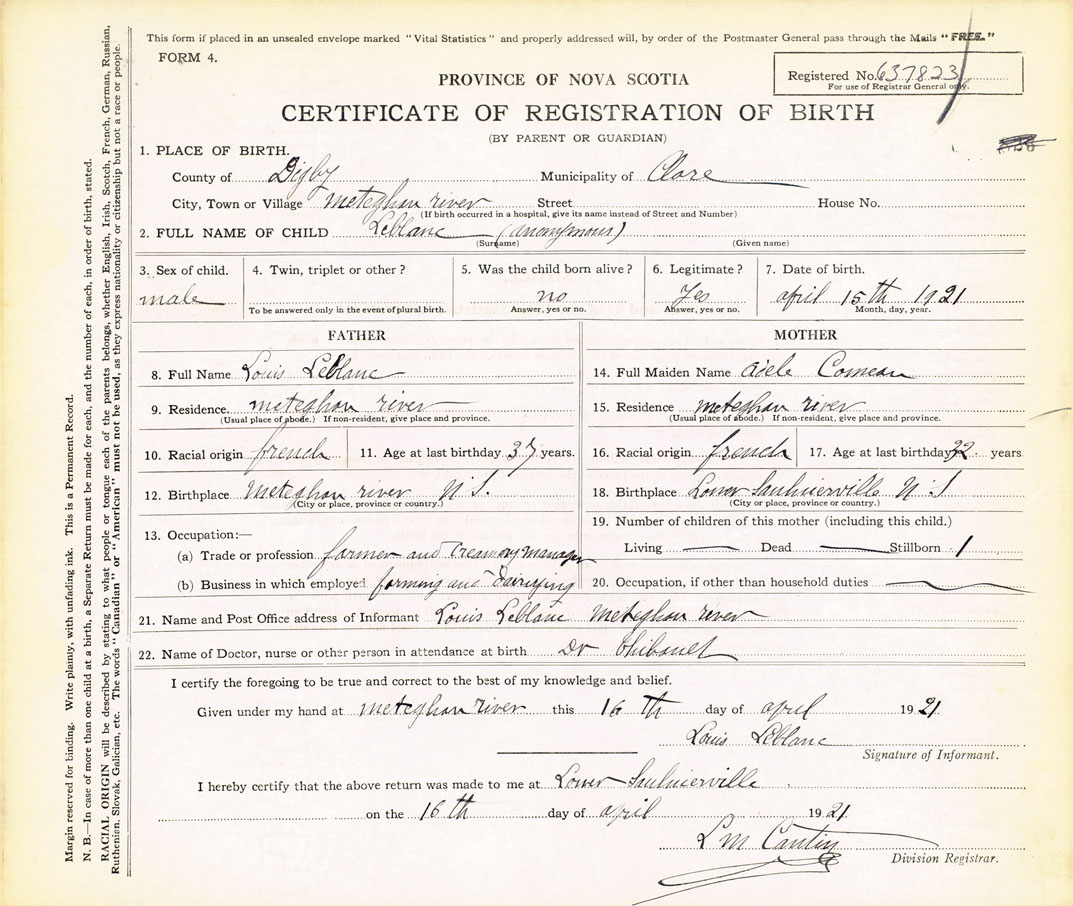 This form if placed in an unsealed envelope marked "Vital Statistics" and properly addressed will, by order of the Postmaster General pass through the Mails "FREE."
FORM 4.
PROVINCE OF NOVA SCOTIA
Registered No. 637823
For use of Registrar General only.
CERTIFICATE OF REGISTRATION OF BIRTH
(BY PARENT OR GUARDIAN)
1. PLACE OF BIRTH.
County of Digby Municipality of Clare
City, Town or Village meteghan river Street House No.
(If birth occurred in a hospital, give its name instead of Street and Number)
2. FULL NAME OF CHILD Leblanc (anonymous)
(Surname) (Given name)
3. Sex of child. 4. Twin, triplet or other? 5. Was the child born alive? 6. Legitimate? 7. Date of birth.
male no Yes april 15th 1921
To be answered only in the event of plural birth. Answer, yes or no. Answer, yes or no. Month, day, year.
FATHER MOTHER
8. Full Name Louis Leblanc 14. Full Maiden Name adele Comeau
9. Residence. meteghan river 15. Residence meteghan river
(Usual place of abode.) If non-resident, give place and province. (Usual place of abode.) If non-resident, give place and province.
10. Racial origin french 11. Age at last birthday 37 years. 16. Racial origin french 17. Age at last birthday years
12. Birthplace meteghan river N.S. 18. Birthplace Lower Saulnierville N.S
(City or place, province or country.) (City or place, province or country.)
13. Occupation:— 19. Number of children of this mother (including this child.)
(a) Trade or profession farmer and Creamery manager Living — Dead — Stillborn 1
(b) Business in which employed farming and dairying 20. Occupation, if other than household duties —
21. Name and Post Office address of Informant Louis Leblanc meteghan river
22. Name of Doctor, nurse or other person in attendance at birth Dr Thibault
I certify the foregoing to be true and correct to the best of my knowledge and belief.
Given under my hand at meteghan river this 16th day of april 1921
Louis Leblanc
Signature of Informant.
I hereby certify that the above return was made to me at Lower Saulnierville
on the 16th day of april 1921.
L M
Division Registrar.
Margin reserved for binding. Write plainly, with unfading ink. This is a Permanent Record.
N. B.—In case of more than one child at a birth, a Separate Return must be made for each, and the number of each, in order of birth, stated.
RACIAL ORIGIN will be described by stating to what people or tongue each of the parents belongs, whether English, Irish, Scotch, French, German, Russian,
Ruthenian, Slovak, Galician, etc. The words "Canadian" or "American" must not be used, as they express nationality or citizenship but not a race or people.